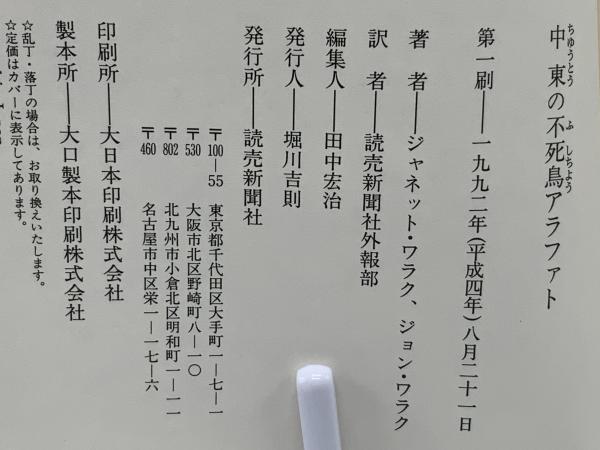 ちゆうとう ふ しちよう
中東の不死鳥アラファト
第一刷━━一九九二年(平成四年)八月二十一日
著 者━━ジャネット・ワラク、ジョン・ワラク
訳 者━━読売新聞社外報部
編集人━━田中宏治
発行人━━堀川吉則
発行所━━読売新聞社
〒100—55 東京都千代田区大手町一—七—一
〒530 大阪市北区野崎町八—一〇
〒802 北九州市小倉北区明和町一—一一
〒460 名古屋市中区栄一—一七—六
印刷所━━大日本印刷株式会社
製本所━━大口製本印刷株式会社
☆乱丁・落丁の場合は、お取り換えいたします。
☆定価はカバーに表示してあります。